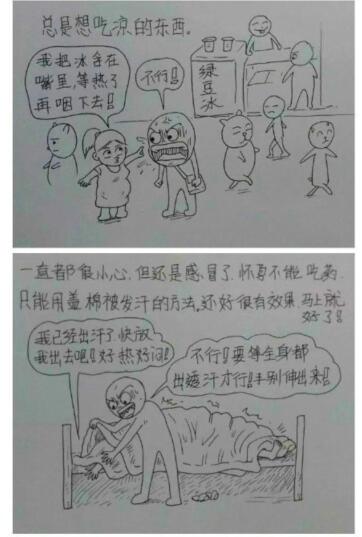 总是想吃凉的东西。
我把冰含在
嘴里，等热了
再咽下去！
不行！
绿
豆
冰
一直都很小心，但还是感冒了，怀孕不能吃药，
只能用盖棉被发汗的方法，还好很有效果，马上就
好了！
我已经出汗了，快放
我出去吧！好热好闷！
不行！要等全身都
出透汗才行！手别伸出来！